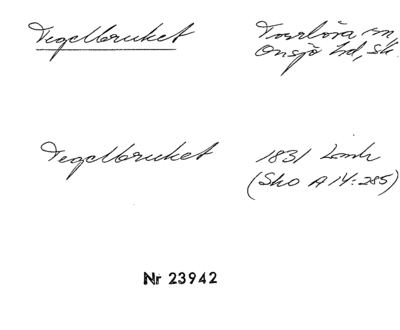 Tegelbruket
Torrlösa sn,
Onsjö hd, Sk.
Tegelbruket
1831 Lmk
(Sko A 14:285)
Nr 23942